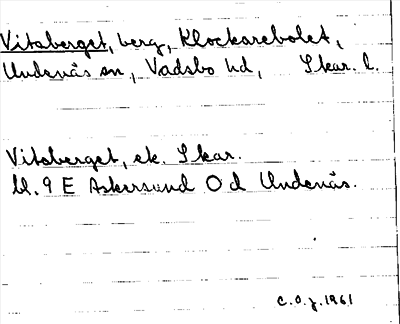 Vitsberget, berg, Klockarebolet,
Undenäs sn, Vadsbo hd, Skar. l.
Vitsberget, ek. Skar.
bl. 9 E Askersund O d Undenäs.
C.O.J. 1961